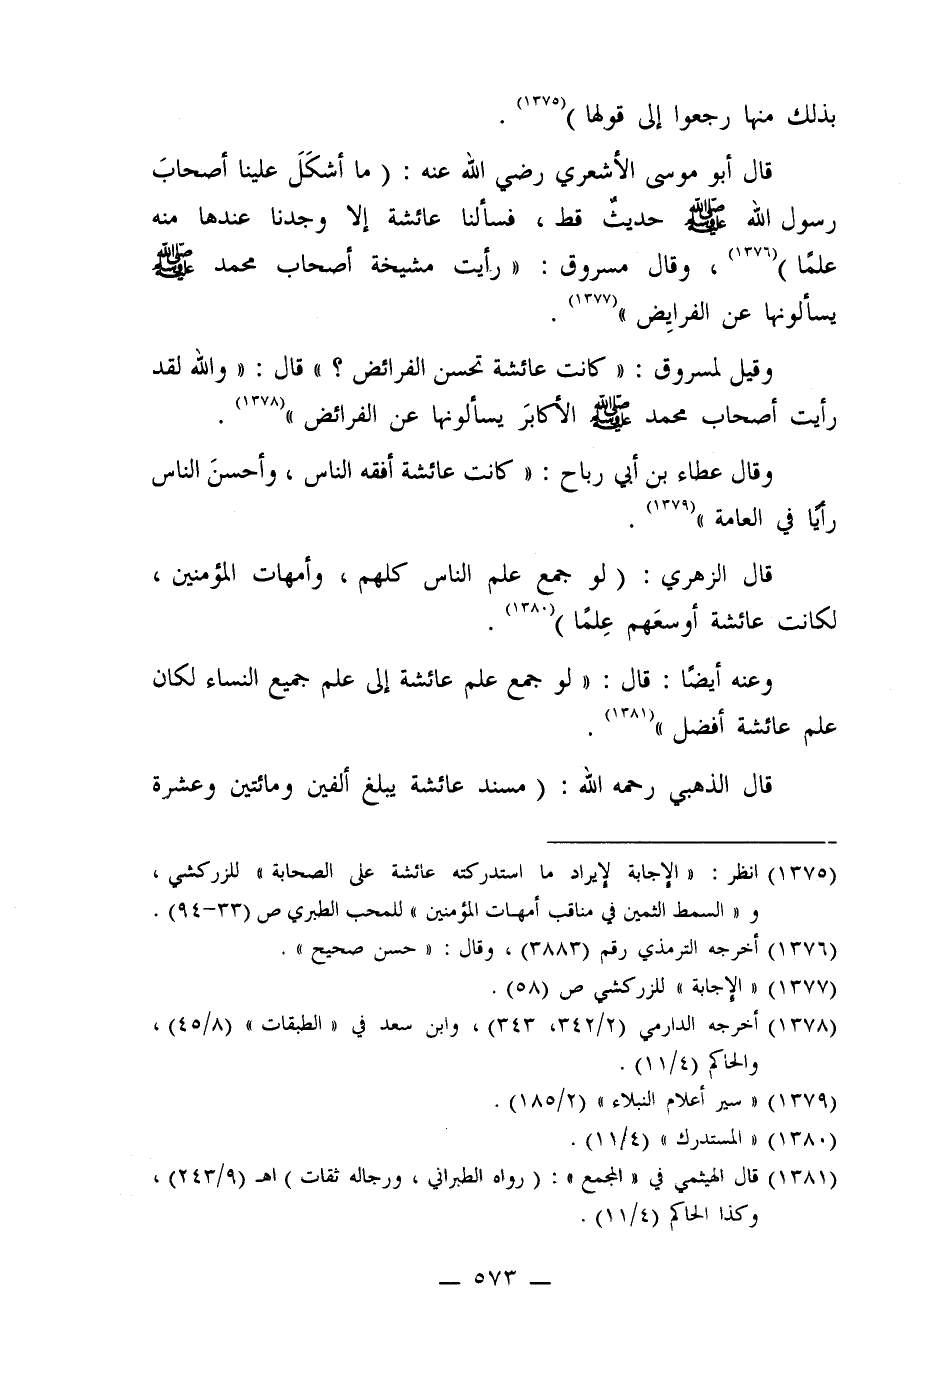 بذلك منها رجعوا إلى قولها )(١٣٧٥) .
قال أبو موسى الأشعري رضي الله عنه : ( ما أشكَلَ علينا أصحابَ
رسول الله ﷺ حديثٌ قط ، فسألنا عائشة إلا وجدنا عندها منه
علمًا )(١٣٧٦) ، وقال مسروق : « رأيت مشيخة أصحاب محمد ﷺ
يسألونها عن الفرايِض »(١٣٧٧) .
وقيل لمسروق : « كانت عائشة تحسن الفرائض ؟ » قال : « والله لقد
رأيت أصحاب محمد ﷺ الأكابرَ يسألونها عن الفرائض »(١٣٧٨) .
وقال عطاء بن أبي رباح : « كانت عائشة أفقه الناس ، وأحسنَ الناس
رأيًا في العامة »(١٣٧٩) .
قال الزهري : ( لو جمع علم الناس كلهم ، وأمهات المؤمنين ،
لكانت عائشة أوسعَهم عِلمًا )(١٣٨٠) .
وعنه أيضًا : قال : « لو جمع علم عائشة إلى علم جميع النساء لكان
علم عائشة أفضل »(١٣٨١) .
قال الذهبي رحمه الله : ( مسند عائشة يبلغ ألفين ومائتين وعشرة
(١٣٧٥) انظر : « الإجابة لإيراد ما استدركته عائشة على الصحابة » للزركشي ،
و « السمط الثمين في مناقب أمهات المؤمنين » للمحب الطبري ص (٣٣-٩٤) .
(١٣٧٦) أخرجه الترمذي رقم (٣٨٨٣) ، وقال : « حسن صحيح » .
(١٣٧٧) « الإجابة » للزركشي ص (٥٨) .
(١٣٧٨) أخرجه الدارمي (٣٤٢/٢، ٣٤٣) ، وابن سعد في « الطبقات » (٤٥/٨) ،
والحاكم (١١/٤) .
(١٣٧٩) « سير أعلام النبلاء » (١٨٥/٢) .
(١٣٨٠) « المستدرك » (١١/٤) .
(١٣٨١) قال الهيثمي في « المجمع » : ( رواه الطبراني ، ورجاله ثقات ) اهـ (٢٤٣/٩) ،
وكذا الحاكم (١١/٤) .
— ٥٧٣ —